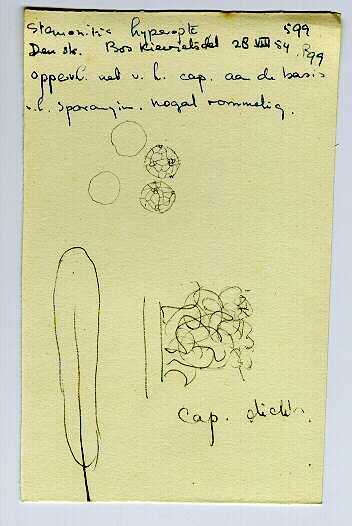 Stemonitis hyperopta 599
Den sk. Bos Kievietsdel 28 VIII 84 P99
oppervl. net v. h. cap. aan de basis
v.h. sporangium. nogal rommelig.
Cap. dicht.